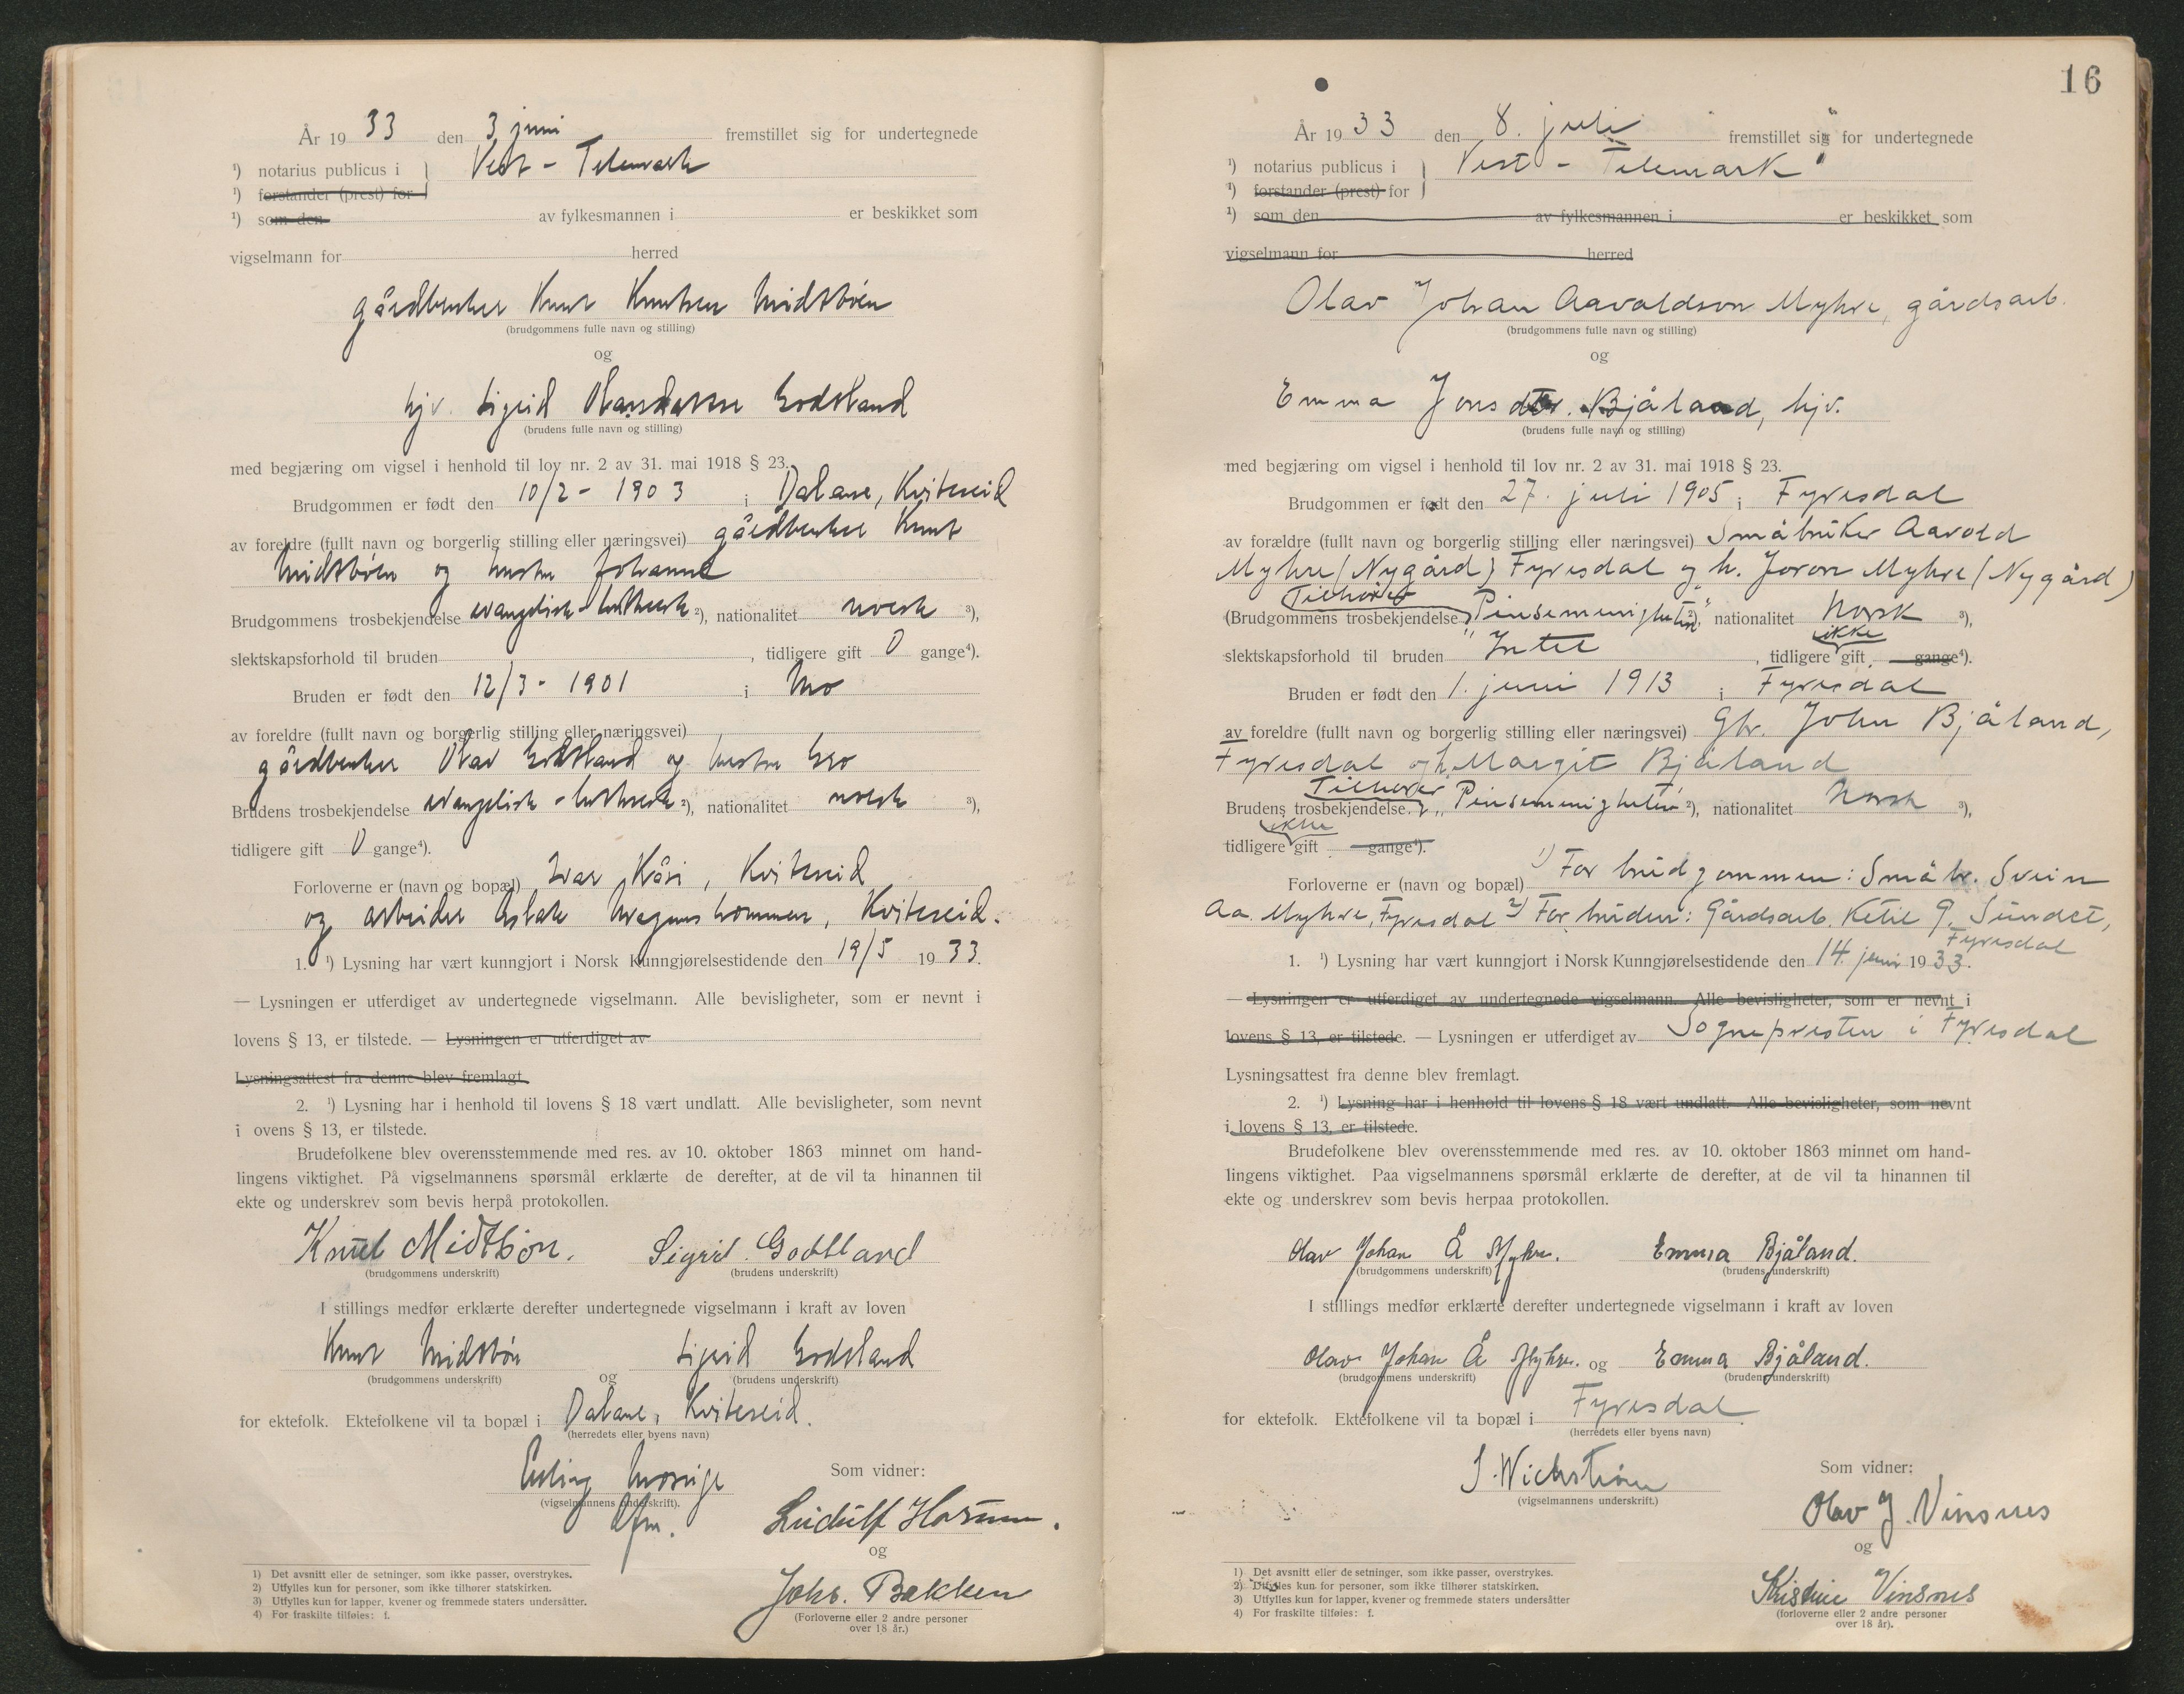 År 1933 den 3 juni fremstillet sig for undertegnede
¹) notarius publicus i } Vest - Telemark
¹) forstander (prest) for
¹) som den av fylkesmannen i er beskikket som
vigselmann for herred
gårdbruker Knut Knutsen Midtbøen
(brudgommens fulle navn og stilling)
og
hjv. Sigrid Olavsdatter Godtland
(brudens fulle navn og stilling)
med begjæring om vigsel i henhold til lov nr. 2 av 31. mai 1918 § 23.
Brudgommen er født den 10/2 - 1903 i Dalane, Kviteseid
av foreldre (fullt navn og borgerlig stilling eller næringsvei) gårdbruker Knut
Midtbøen og hustru Johanne
Brudgommens trosbekjendelse evangelisk-luthersk ²), nationalitet norsk ³),
slektskapsforhold til bruden , tidligere gift 0 gange⁴).
Bruden er født den 12/3 - 1901 i Mo
av foreldre (fullt navn og borgerlig stilling eller næringsvei)
gårdbruker Olav Godtland og hustru Gro
Brudens trosbekjendelse evangelisk - luthersk ²), nationalitet norsk ³),
tidligere gift 0 gange⁴).
Forloverne er (navn og bopæl) Ivar Kåsi, Kviteseid
og arbeider Aslak , Kviteseid.
1. ¹) Lysning har vært kunngjort i Norsk Kunngjørelsestidende den 19/5 1933.
— Lysningen er utferdiget av undertegnede vigselmann. Alle bevisligheter, som er nevnt i
lovens § 13, er tilstede. — Lysningen er utferdiget av
Lysningsattest fra denne blev fremlagt.
2. ¹) Lysning har i henhold til lovens § 18 vært undlatt. Alle bevisligheter, som nevnt
i ovens § 13, er tilstede.
Brudefolkene blev overensstemmende med res. av 10. oktober 1863 minnet om hand-
lingens viktighet. På vigselmannens spørsmål erklærte de derefter, at de vil ta hinannen til
ekte og underskrev som bevis herpå protokollen.
Knut Midtbøn. Sigrid Godtland
(brudgommens underskrift) (brudens underskrift)
I stillings medfør erklærte derefter undertegnede vigselmann i kraft av loven
Knut Midtbøn og Sigrid Godtland
(brudgommens underskrift) (brudens underskrift)
for ektefolk. Ektefolkene vil ta bopæl i Dalane, Kviteseid.
(herredets eller byens navn)
Erling Mossige
(vigselmannens underskrift).
Som vidner:
Ludulf
og
Johs. Bakken
(Forloverne eller 2 andre personer
over 18 år.)
1) Det avsnitt eller de setninger, som ikke passer, overstrykes.
2) Utfylles kun for personer, som ikke tilhører statskirken.
3) Utfylles kun for lapper, kvener og fremmede staters undersåtter.
4) For fraskilte tilføies: f.
16
År 1933 den 8. juli fremstillet sig for undertegnede
¹) notarius publicus i } Vest - Telemark
¹) forstander (prest) for
¹) som den av fylkesmannen i er beskikket som
vigselmann for herred
Olav Johan Aavaldson Myhre, gårdsarb.
(brudgommens fulle navn og stilling)
og
Emma Jonsdtr. Bjåland, hjv.
(brudens fulle navn og stilling)
med begjæring om vigsel i henhold til lov nr. 2 av 31. mai 1918 § 23.
Brudgommen er født den 27. juli 1905 i Fyresdal
av forældre (fullt navn og borgerlig stilling eller næringsvei) Småbruker Aavold
Myhre (Nygård) Fyresdal og h. Joron Myhre (Nygård)
Tilhører
(Brudgommens trosbekjendelse) "Pinsemenigheten" ²), nationalitet Norsk ³),
slektskapsforhold til bruden Intet, tidligere ikke gift gange⁴).
Bruden er født den 1. juni 1913 i Fyresdal
av foreldre (fullt navn og borgerlig stilling eller næringsvei) Gbr. John Bjåland,
Fyresdal og h. Margit Bjåland
Tilhører
Brudens trosbekjendelse "Pinsemenigheten" ²), nationalitet Norsk ³),
tidligere ikke gift gange⁴).
Forloverne er (navn og bopæl) ¹) For brudgommen: Småbr. Svein
Aa. Myhre, Fyresdal ²) For bruden: Gårdsarb. Ketil G. Sundet,
Fyresdal
1. ¹) Lysning har vært kunngjort i Norsk Kunngjørelsestidende den 14. juni 1933.
— Lysningen er utferdiget av undertegnede vigselmann. Alle bevisligheter, som er nevnt i
lovens § 13, er tilstede. — Lysningen er utferdiget av Sognepresten i Fyresdal
Lysningsattest fra denne blev fremlagt.
2. ¹) Lysning har i henhold til lovens § 18 vært undlatt. Alle bevisligheter, som nevnt
i lovens § 13, er tilstede.
Brudefolkene blev overensstemmende med res. av 10. oktober 1863 minnet om hand-
lingens viktighet. Paa vigselmannens spørsmål erklærte de derefter, at de vil ta hinannen til
ekte og underskrev som bevis herpaa protokollen.
Olav Johan Å Myhre. Emma Bjåland.
(brudgommens underskrift) (brudens underskrift)
I stillings medfør erklærte derefter undertegnede vigselmann i kraft av loven
Olav Johan Å Myhre. og Emma Bjåland.
(brudgommens underskrift) (brudens underskrift)
for ektefolk. Ektefolkene vil ta bopæl i Fyresdal.
(herredets eller byens navn)
S. Wichstrøm
(vigselmannens underskrift.)
Som vidner:
Olav J. Vinsnes
og
Kristine Vinsnes
(forloverne eller 2 andre personer
over 18 år).
1) Det avsnitt eller de setninger, som ikke passer, overstrykes.
2) Utfylles kun for personer, som ikke tilhører statskirken.
3) Utfylles kun for lapper, kvener og fremmede staters undersåtter
4) For fraskilte tilføies: f.